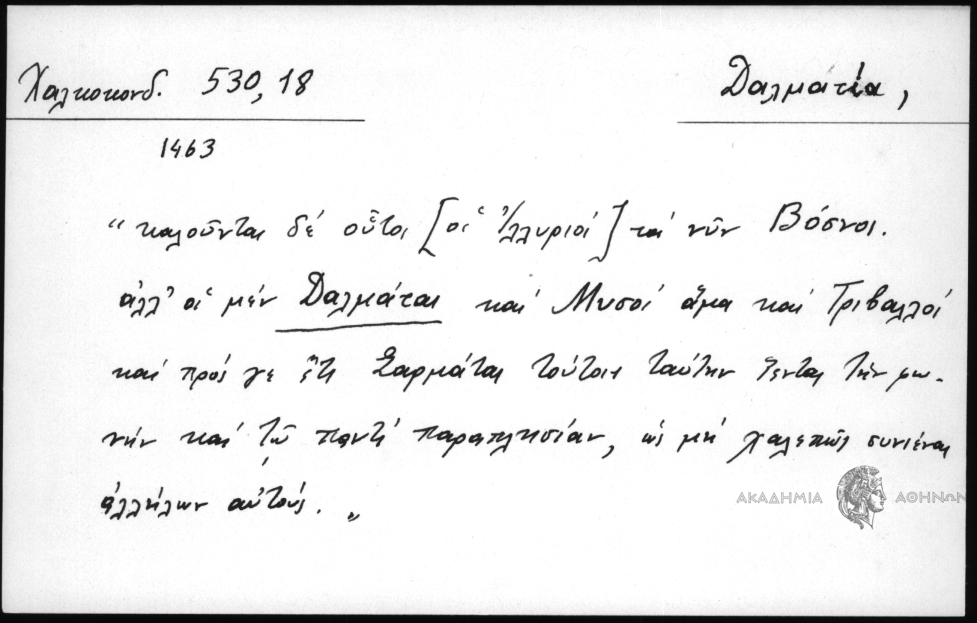 Χαλκοκονδ. 530,18
Δαλματία,
1463
“ καλοῦνται δέ οὗτοι [οἱ Ἰλλυριοί] τά νῦν Βόσνοι.
ἀλλ’ οἱ μέν Δαλμάται καί Μυσοί ἅμα καί Τριβαλλοί
καί πρός γε ἔτι Σαρμάται τούτοις ταύτην ἵενται τήν φω-
νήν καί τῷ παντί παραπλησίαν, ὡς μή χαλεπῶς συνιέναι
ἀλλήλων αὐτούς. „
ΑΚΑΔΗΜΙΑ ΑΘΗΝΩΝ